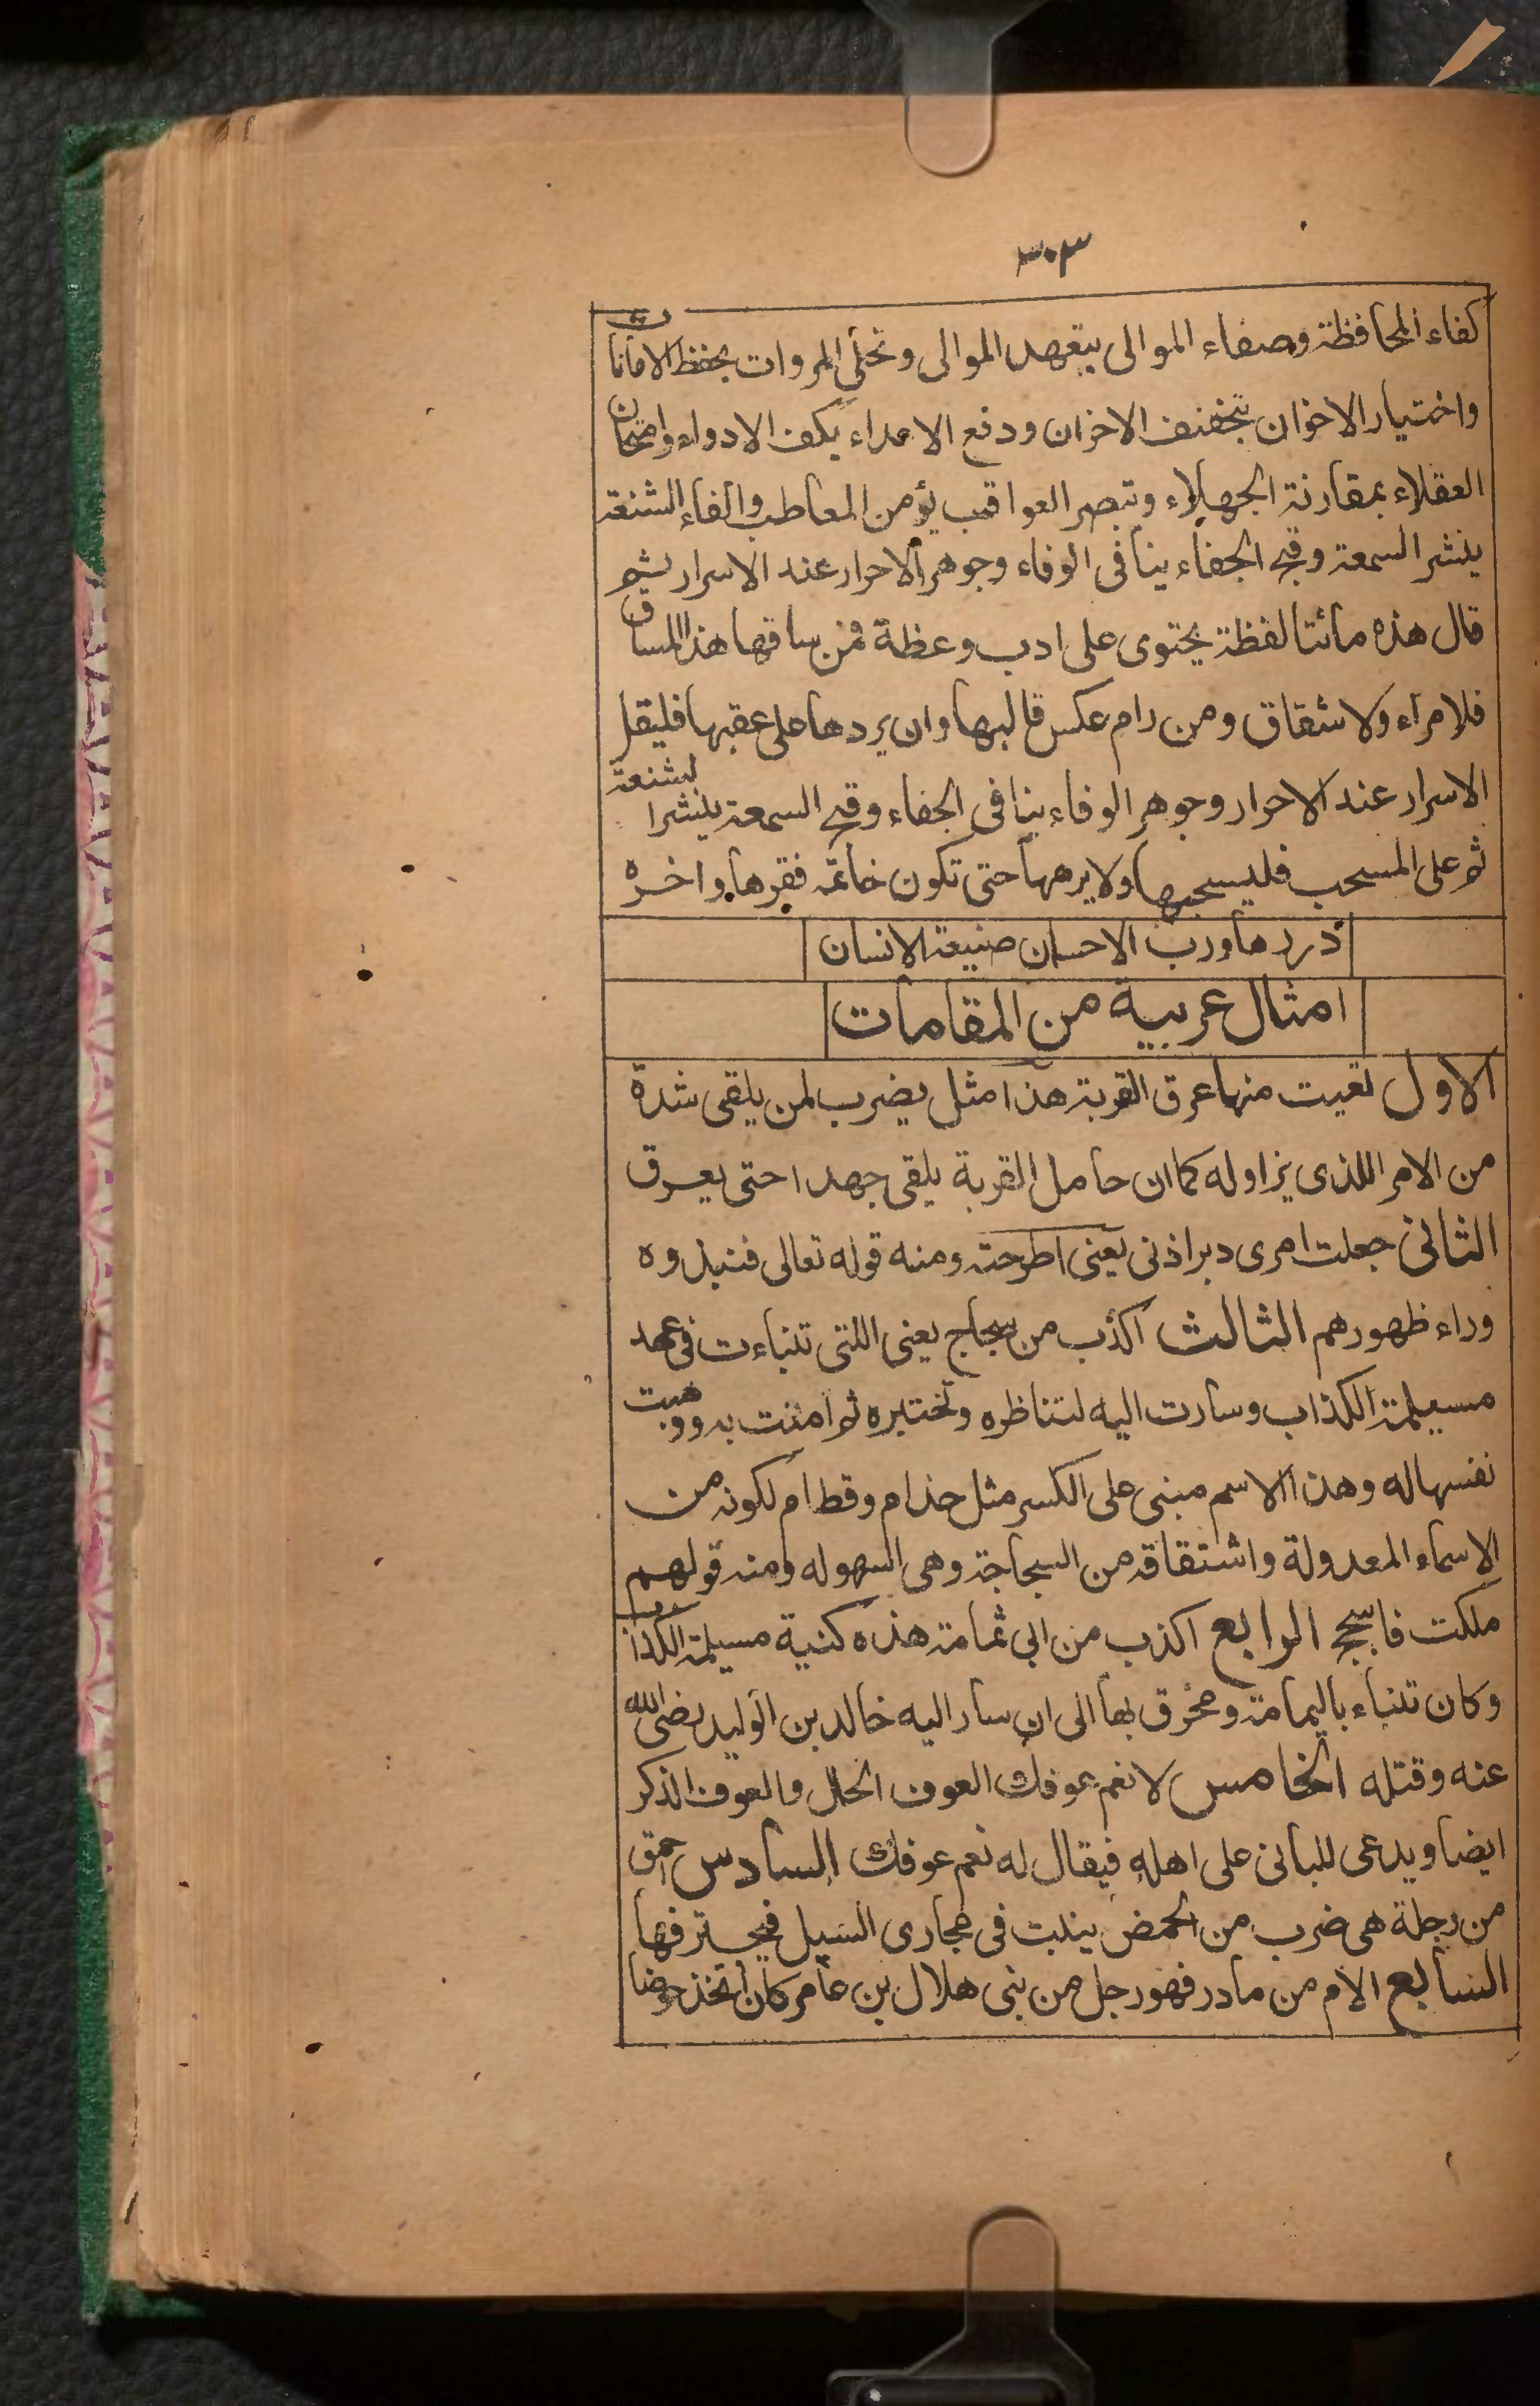 ٣٠٣
كفاء المحافظة وصفاء الموالى بتعهد الموالى وتحلى المروات بحفظ الامانات
واختيار الاخوان بتخفيف الاحزان ودفع الاعداء بكف الادواء وامتحان
العقلاء بمقارنة الجهلاء وتبصر العواقب يؤمن المعاطب واتقاء الشنعة
ينشر السمعة وقبح الجفاء ينافى الوفاء وجوهر الاحرار عند الاسرار ثم
قال هذه مائتا لفظة يحتوى على ادب وعظة فمن ساقها هذا المساق
فلا مراء ولا شقاق ومن رام عكس قالبها وان يردها على عقبها فليقل
الاسرار عند الاحرار وجوهر الوفاء ينافى الجفاء وقبح السمعة ينشر الشنعة
ثم على المسحب فليسحبها ولا يرهبها حتى تكون خاتمة فقرها واخره
دررها ورب الاحسان صنيعة الانسان
امثال عربية من المقامات
الاول لقيت منها عرق القربة هذا مثل يضرب لمن يلقى شدة
من الامر اللذى يزاوله كما ان حامل القربة يلقى جهدا حتى يعرق
الثانى جعلت امرى دبر اذنى يعنى اطرحته ومنه قوله تعالى فنبذوه
وراء ظهورهم الثالث اكذب من سجاح يعنى اللتى تنباءت فى عهد
مسيلمة الكذاب وسارت اليه لتناظره وتختبره ثم امنت به ووهبت
نفسها له وهذا الاسم مبنى على الكسر مثل حذام وقطام لكونه من
الاسماء المعدولة واشتقاقه من السجاحة وهى السهوله ومنه قولهم
ملكت فاسجح الرابع اكذب من ابى ثمامة هذه كنية مسيلمة الكذاب
وكان تنباء باليمامة ومخرق بها الى ان سار اليه خالد بن الوليد رضى الله
عنه وقتله الخامس لا نعم عوفك العوف الحال والعوف الذكر
ايضا ويدعى للبانى على اهله فيقال له نعم عوفك السادس احمق
من رجلة هى ضرب من الحمض ينبت فى مجارى السيل فيجترفها
السابع الام من مادر فهو رجل من بنى هلال بن عامر كان اتخذ حوضا